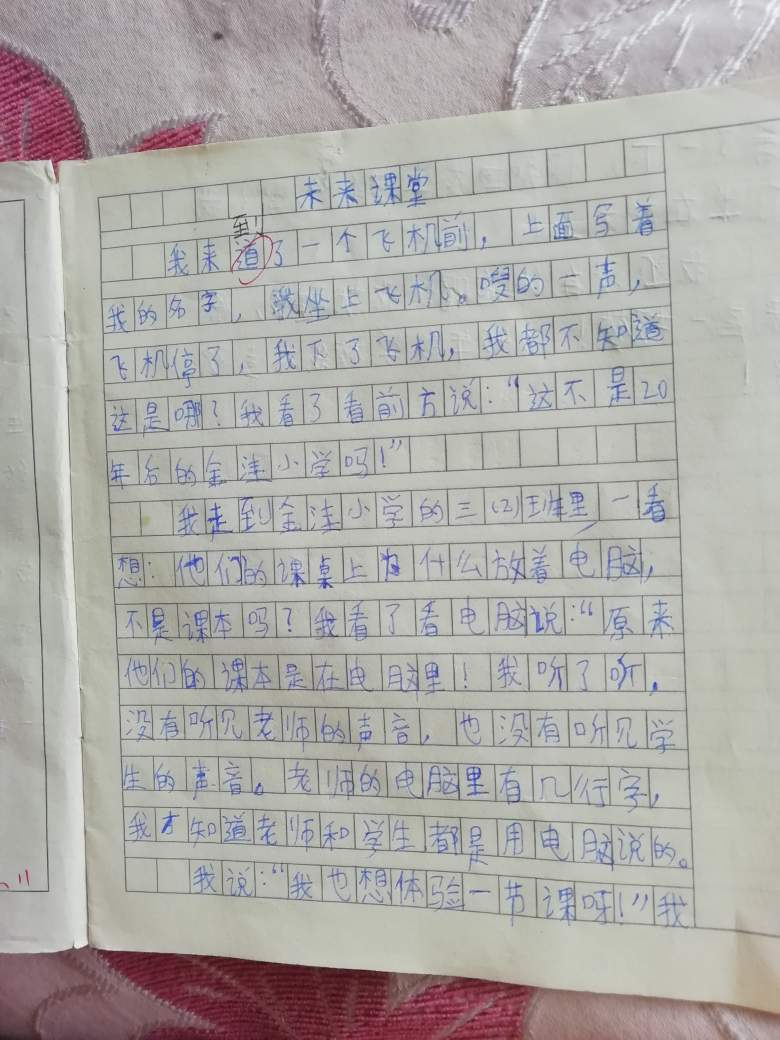 未来课堂
到
我来道了一个飞机前，上面写着
我的名字，我坐上飞机。嗖的一声，
飞机停了，我下了飞机，我都不知道
这是哪？我看了看前方说：“这不是20
年后的金洼小学吗！”
我走到金洼小学的三（2）班里，一看
想：他们的课桌上为什么放着电脑，
不是课本吗？我看了看电脑说：“原来
他们的课本是在电脑里！我听了听，
没有听见老师的声音，也没有听见学
生的声音。老师的电脑里有几行字，
我才知道老师和学生都是用电脑说的。
我说：“我也想体验一节课呀！”我